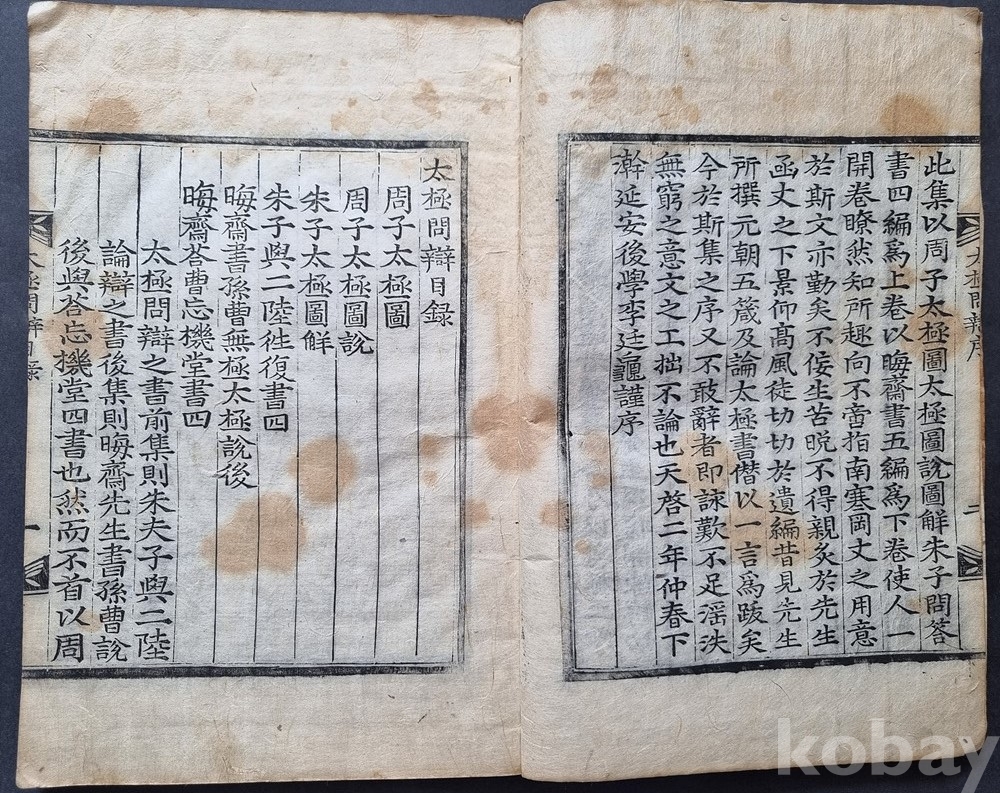 此集以周子太極圖太極圖說圖解朱子問答
書四編爲上卷以晦齋書五編爲下卷使人一
開卷瞭然知所趣向不啻指南寒岡丈之用意
於斯文亦勤矣不佞生苦晩不得親炙於先生
函丈之下景仰高風徒切切於遺編昔見先生
所撰元朝五箴及論太極書僭以一言爲跋矣
今於斯集之序又不敢辭者即詠歎不足淫泆
無窮之意文之工拙不論也天啓二年仲春下
澣延安後學李廷龜謹序
太極問辯目錄
周子太極圖
周子太極圖說
朱子太極圖解
朱子與二陸徃復書四
晦齋書孫曹無極太極說後
晦齋荅曹忘機堂書四
太極問辯之書前集則朱夫子與二陸
論辯之書後集則晦齋先生書孫曹說
後與荅忘機堂四書也然而不首以周
太極問辯目錄
一
太極問辯序
二
kobay